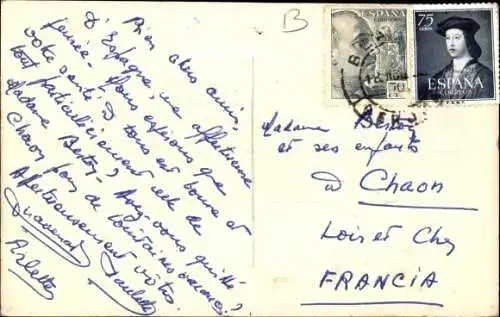 B
ESPAÑA
CORREOS
50
75
CTS
ESPAÑA
CORREOS
Bien chers amis,
d'Espagne, une affectueuse
pensée. Nous espérons que
votre santé à tous est bonne et
tout particulièrement celle de
Madame Bestoy. Avez-vous quitté
Chaon pour de lointaines vacances ?
Affectueusement vôtres.
Paulette
Arlette
Madame Bestoy
et ses enfants
à Chaon
Loir et Cher
FRANCIA